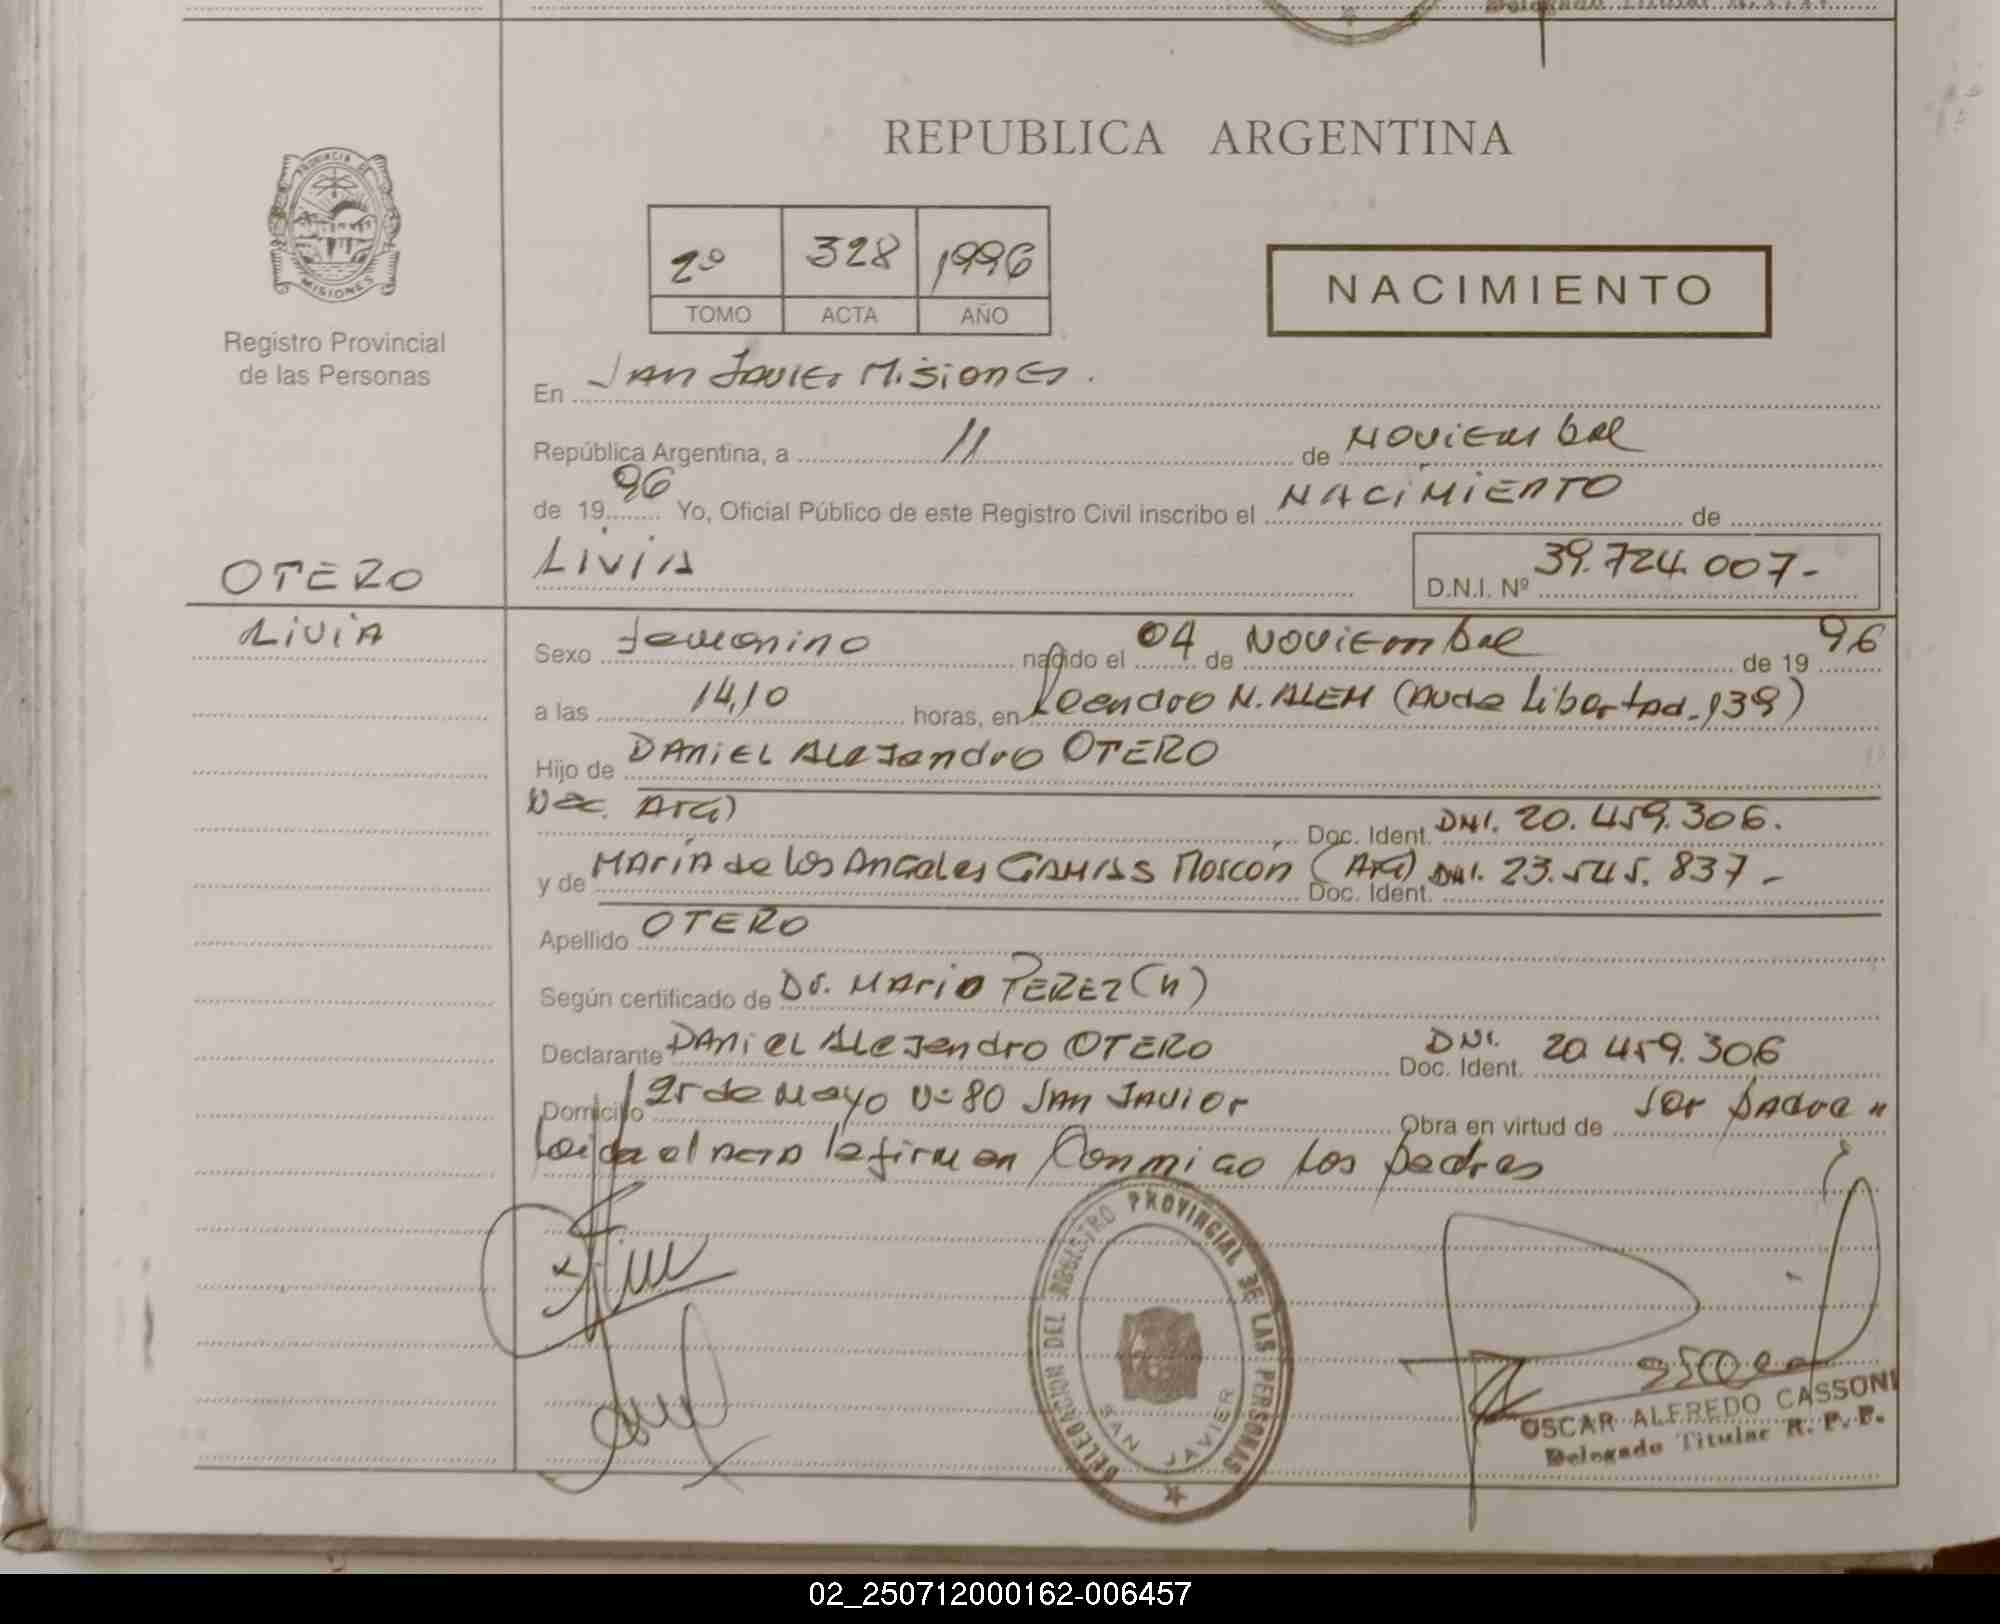 Delegado Titular R.P.P.
REPUBLICA ARGENTINA
PROVINCIA DE MISIONES
Registro Provincial
de las Personas
2º 328 1996
TOMO ACTA AÑO
NACIMIENTO
En San Javier Misiones.
República Argentina, a 11 de Noviembre
de 1996 Yo, Oficial Público de este Registro Civil inscribo el NACIMIENTO de
LiviA D.N.I. Nº 39.724.007-
OTERO
LiviA
Sexo femenino nacido el 04 de Noviembre de 1996
a las 14,10 horas, en Leandro N. ALEM (Avda Libertad-139)
Hijo de DANiEL Alejandro OTERO
Arg) Doc. Ident. DNI. 20.459.306.
y de MAríA de los Angeles Moscon (Arg) Doc. Ident. DNI. 23.545.837-
Apellido OTERO
Según certificado de Dr. MArio PEREZ (n)
Declarante DANiEL Alejandro OTERO Doc. Ident. DNI. 20.459.306
Domicilio 25 de Mayo Nº 80 San Javier Obra en virtud de ser padre "
Leida el acta la firman Conmigo Los padres
DELEGACION DEL REGISTRO PROVINCIAL DE LAS PERSONAS
SAN JAVIER
OSCAR ALFREDO CASSONI
Delegado Titular R. P. P.
02_250712000162-006457